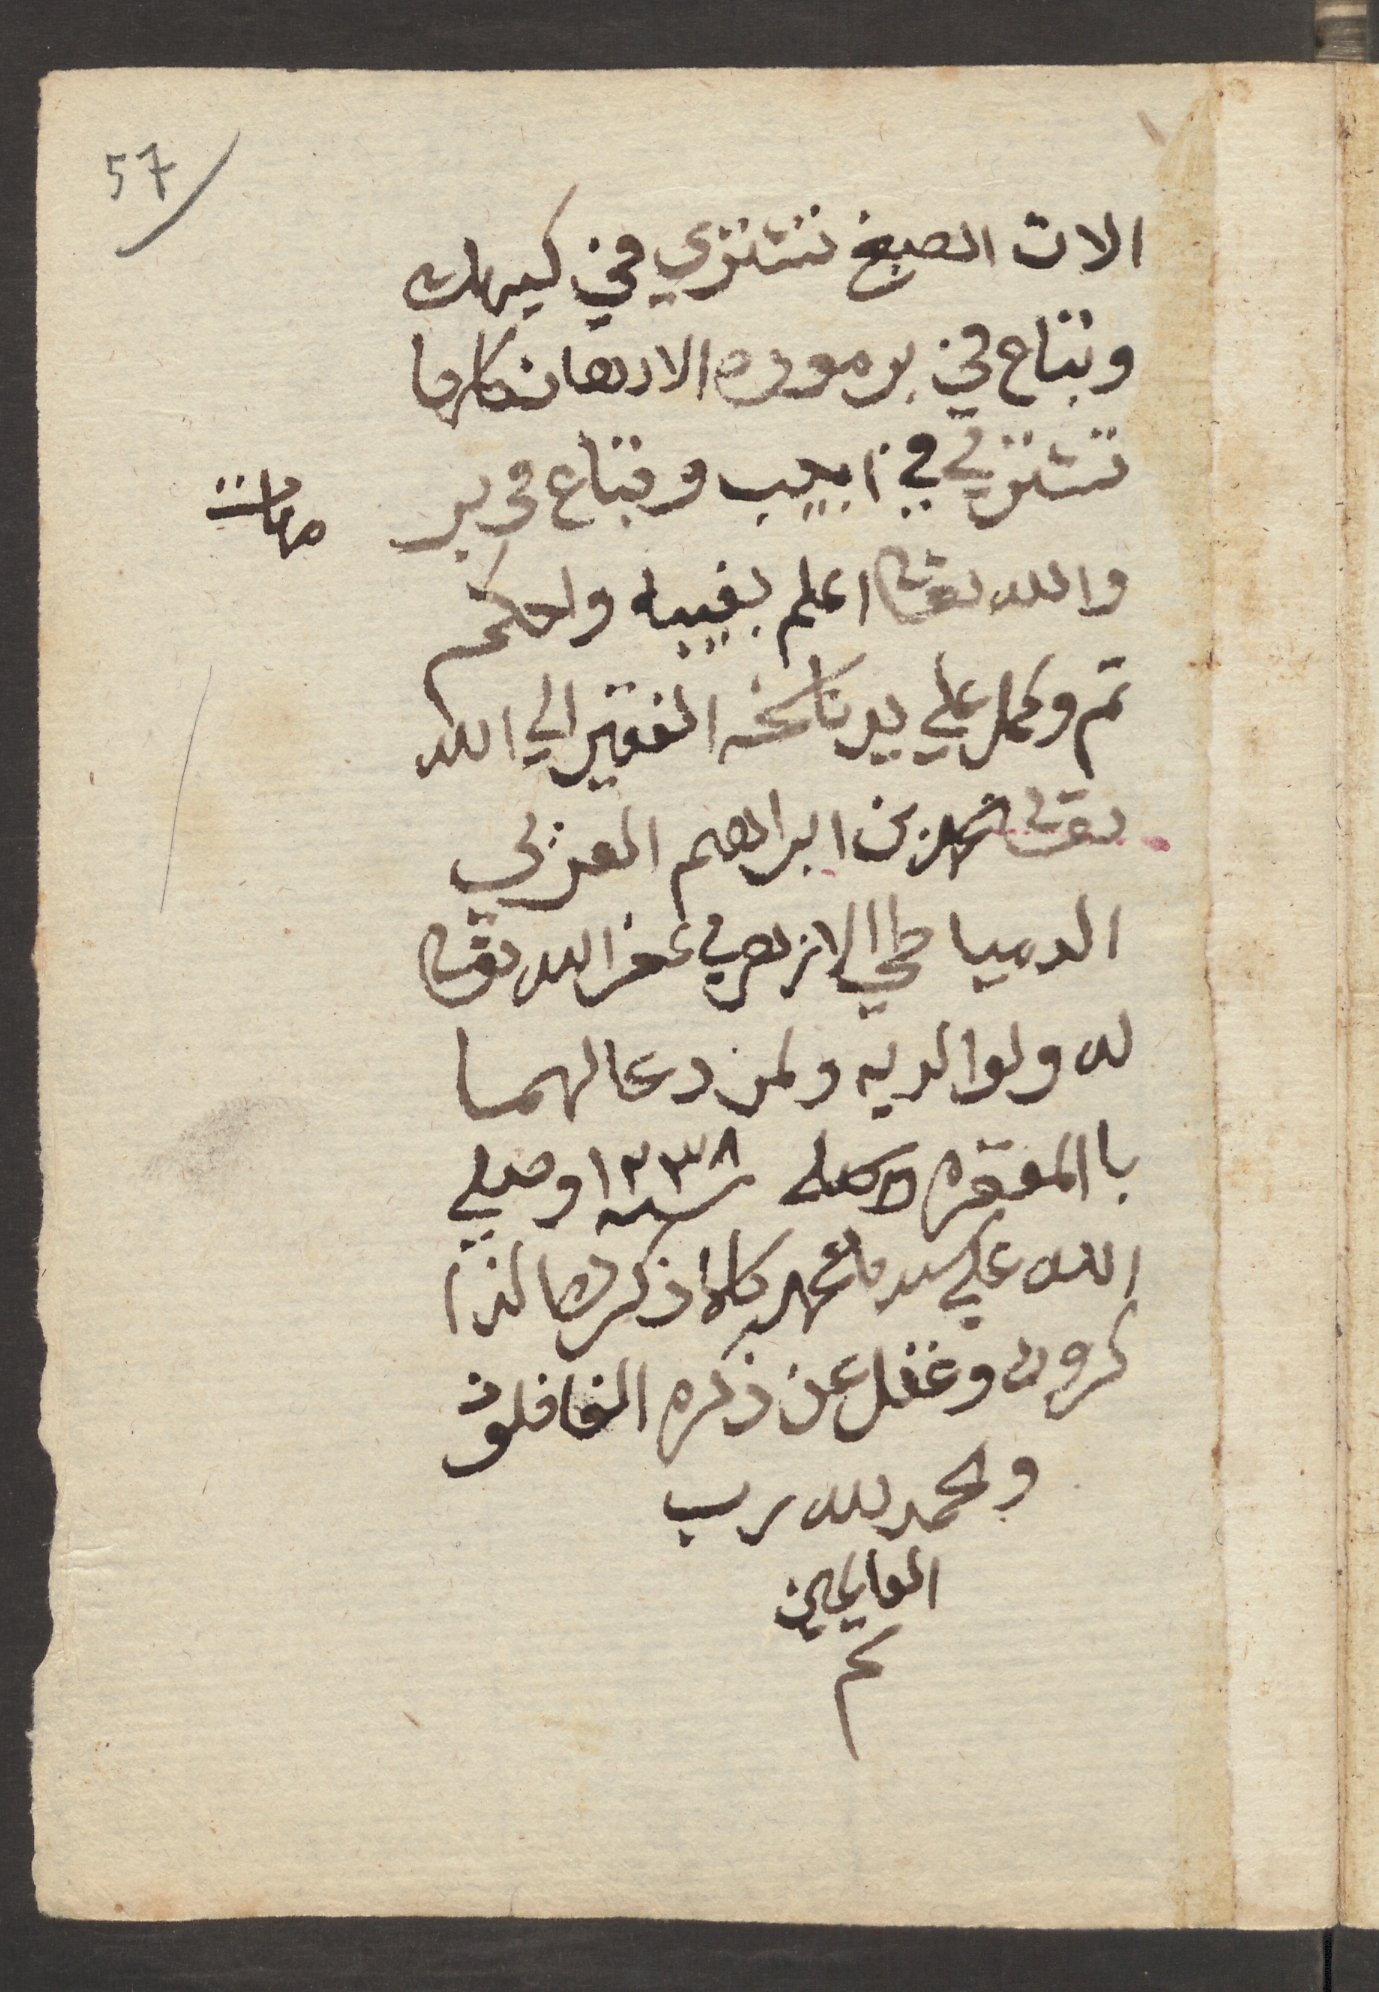 57
الات الصبغ تشتري في كيهك
وتباع في برموده الادهان كلها
تشتري في ابيب وتباع في بر
مهات
والله تعالى اعلم بغيبه واحكم
تم وكمل علي يد ناسخه الفقير الي الله
تعالى محمد بن ابراهيم العزبي
الدمياطي الازهري غفر الله تعالى
له ولوالديه ولمن دعا لهما
باالمغفره سنه ١٢٣٨ وصلي
الله علي سيدنا محمد كلما ذكره الذا
كرون وغفل عن ذكره الغافلون
والحمد لله رب
العالمين
تم